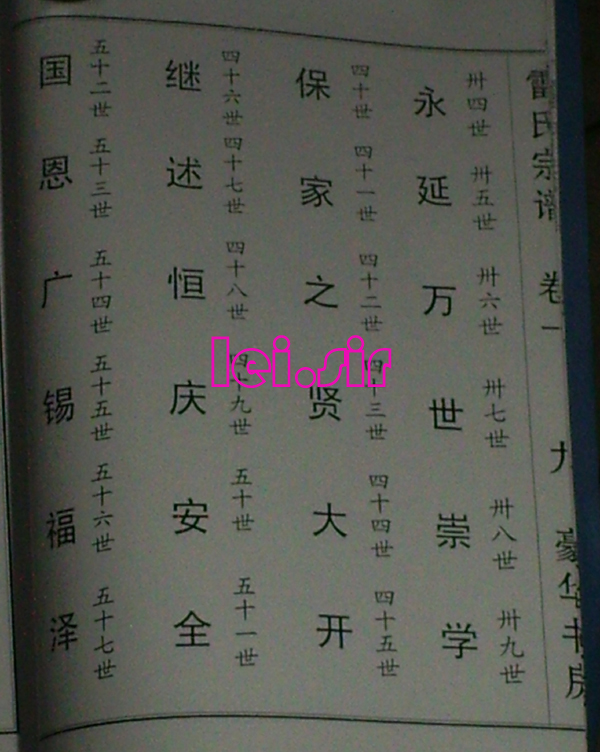 雷氏宗谱 卷一 九 豪华书房
卅四世 卅五世 卅六世 卅七世 卅八世 卅九世
永延万世崇学
四十世 四十一世 四十二世 四十三世 四十四世 四十五世
保家之贤大开
四十六世 四十七世 四十八世 四十九世 五十世 五十一世
继述恒庆安全
五十二世 五十三世 五十四世 五十五世 五十六世 五十七世
国恩广锡福泽
lei.sir